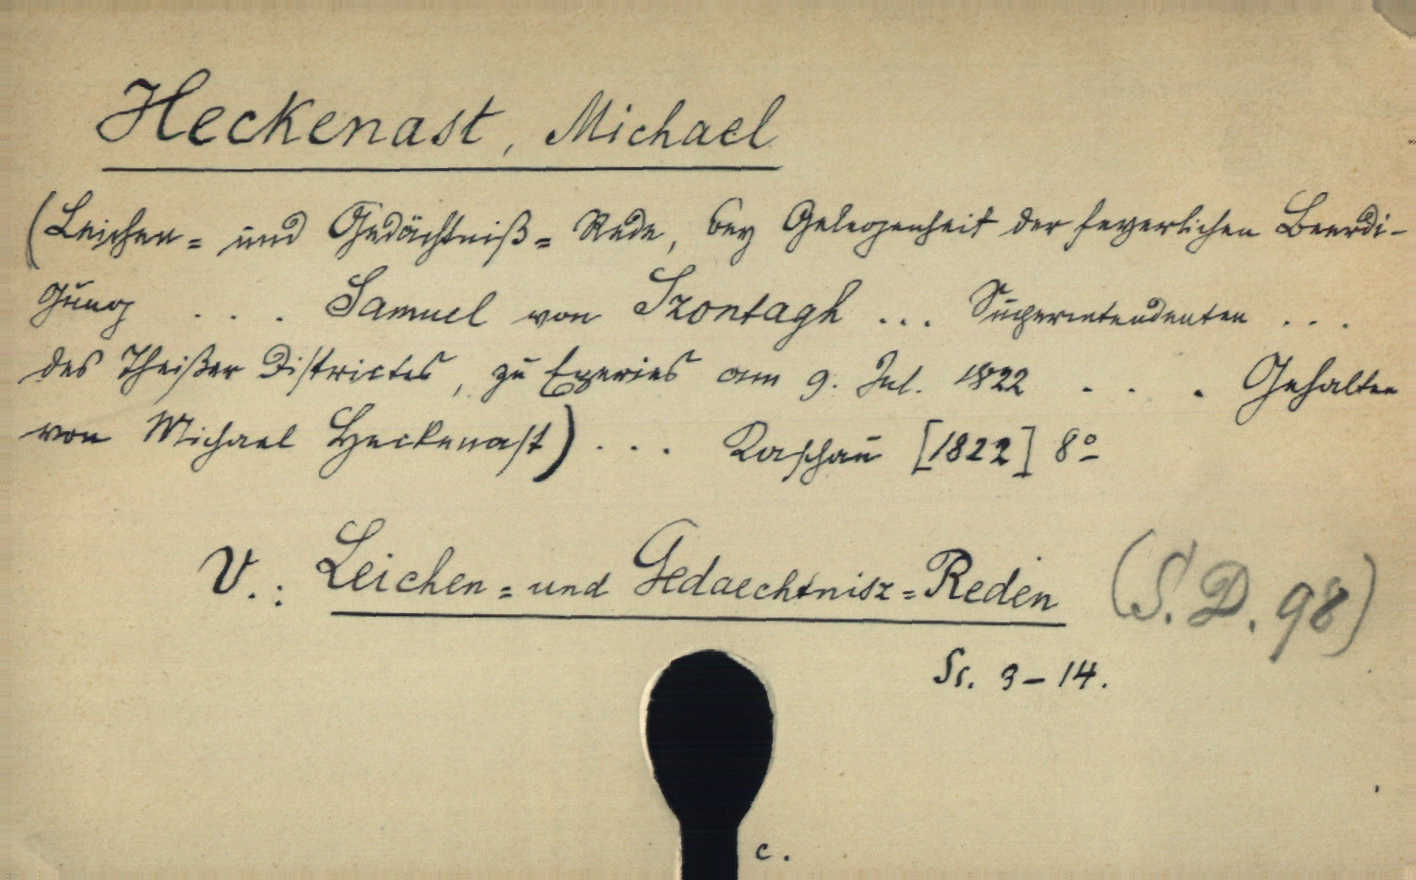 Heckenast, Michael
(Leichen= und Gedächtniß=Rede, bey Gelegenheit der feyerlichen Beerdi-
gung . . . Samuel von Szontagh ... Superintendenten ...
des Theißer Districtes, zu Eperies am 9. Jul. 1822 . . . Gehalten
von Michael Heckenast) . . . Kaschau [1822] 8º
V.: Leichen=und Gedaechtnisz=Reden (S. D. 98)
Ss. 3-14.
c.